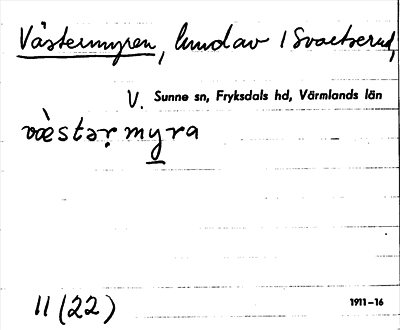 Västermyren, lund av / Svartserud,
V. Sunne sn, Fryksdals hd, Värmlands län
væ̀stər myra
11 (22) 1911–16